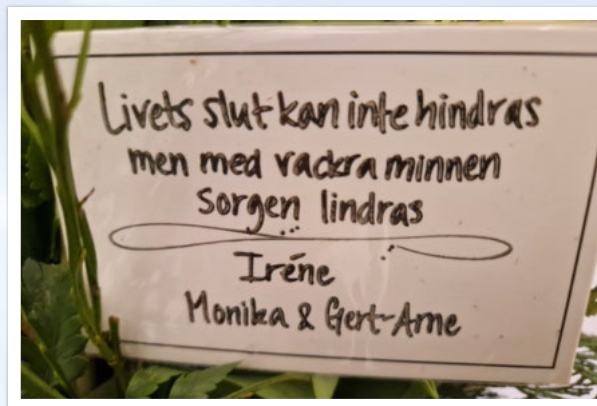 Livets slut kan inte hindras
men med vackra minnen
sorgen lindras
Iréne
Monika & Gert-Arne